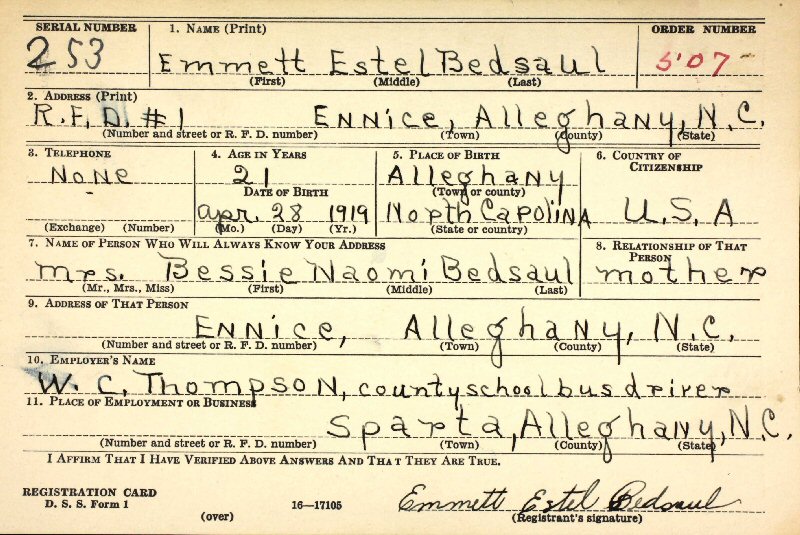 SERIAL NUMBER 1. NAME (Print) ORDER NUMBER
253 Emmett Estel Bedsaul 507
(First) (Middle) (Last)
2. ADDRESS (Print)
R.F.D. #1 Ennice, Alleghany, N.C.
(Number and street or R. F. D. number) (Town) (County) (State)
3. TELEPHONE 4. AGE IN YEARS 5. PLACE OF BIRTH 6. COUNTRY OF CITIZENSHIP
None 21 Alleghany
DATE OF BIRTH (Town or county)
Apr. 28 1919 North Carolina U.S.A
(Exchange) (Number) (Mo.) (Day) (Yr.) (State or country)
7. NAME OF PERSON WHO WILL ALWAYS KNOW YOUR ADDRESS 8. RELATIONSHIP OF THAT PERSON
Mrs. Bessie Naomi Bedsaul mother
(Mr., Mrs., Miss) (First) (Middle) (Last)
9. ADDRESS OF THAT PERSON
Ennice, Alleghany, N.C.
(Number and street or R. F. D. number) (Town) (County) (State)
10. EMPLOYER'S NAME
W. C. Thompson, county school bus driver
11. PLACE OF EMPLOYMENT OR BUSINESS
Sparta, Alleghany, N.C.
(Number and street or R. F. D. number) (Town) (County) (State)
I AFFIRM THAT I HAVE VERIFIED ABOVE ANSWERS AND THAT THEY ARE TRUE.
REGISTRATION CARD
D. S. S. Form 1 16—17105 Emmett Estel Bedsaul
(over) (Registrant's signature)